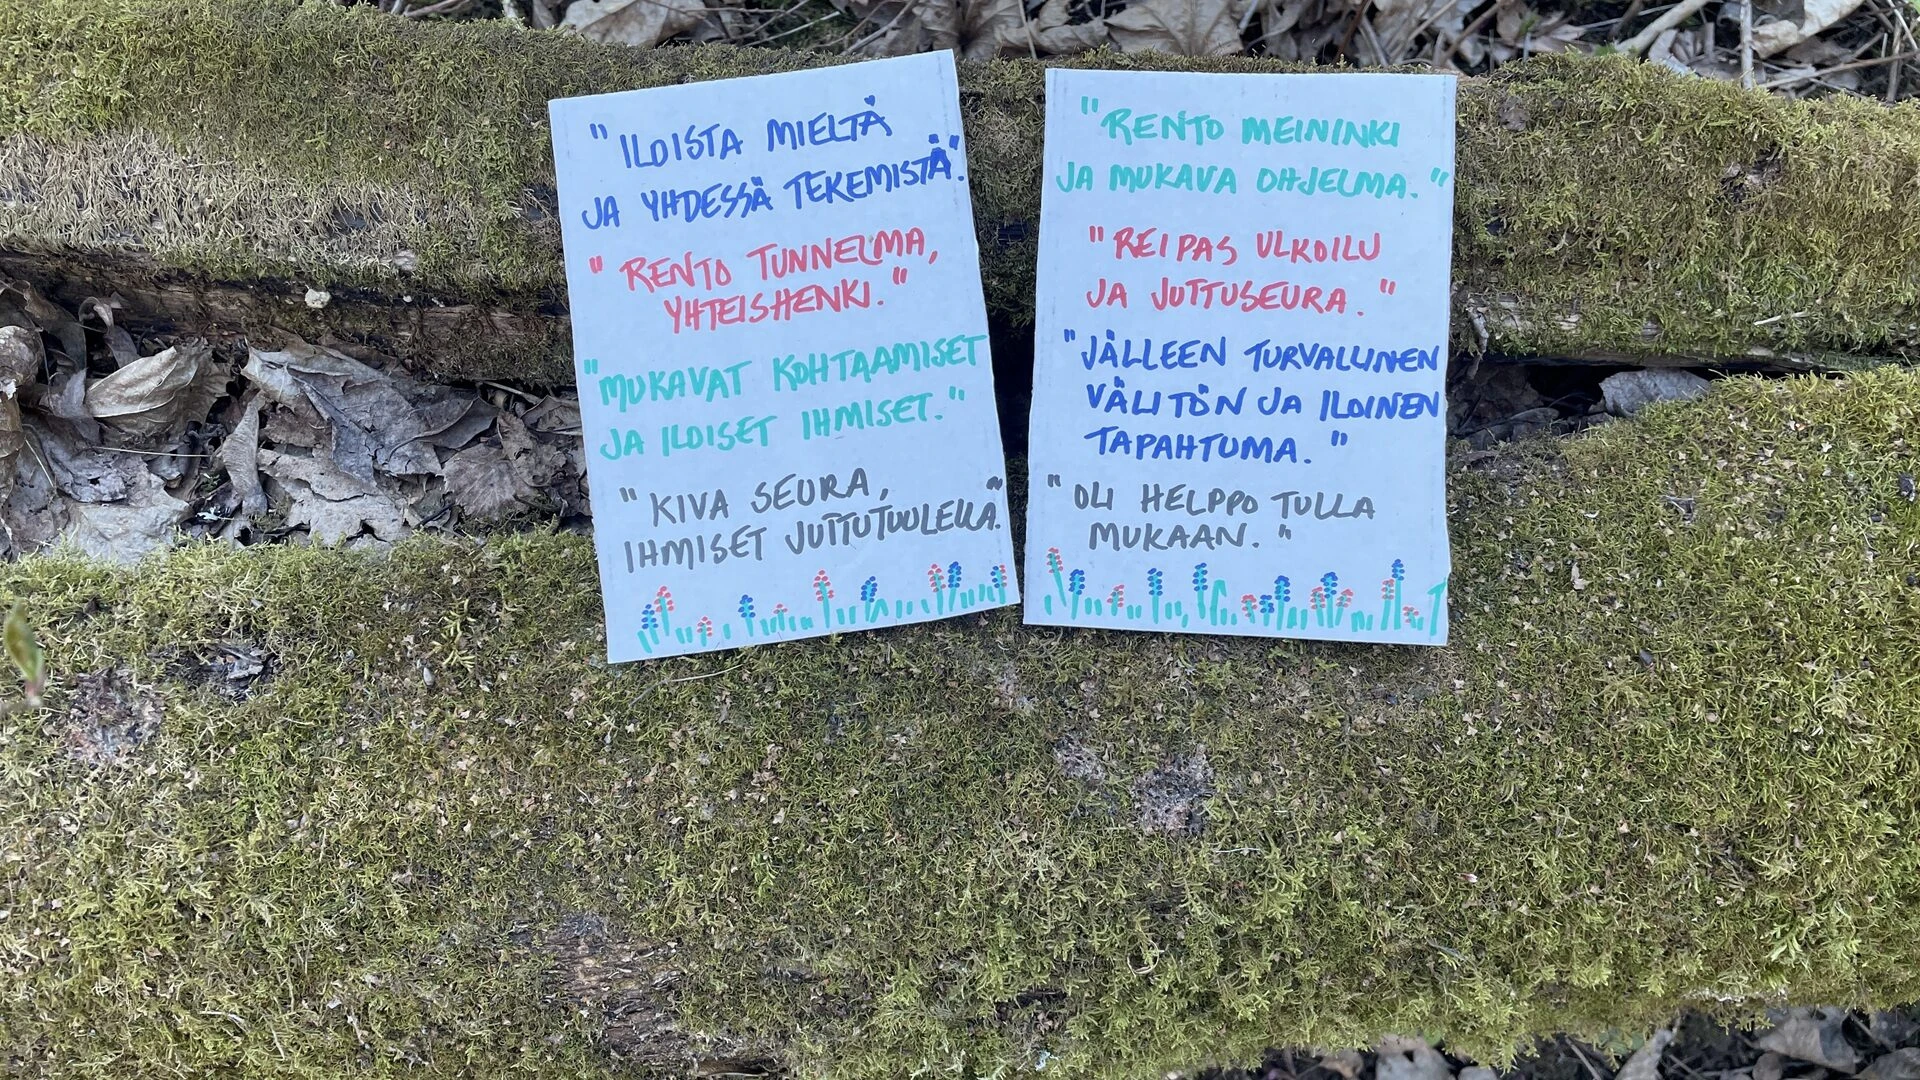 "ILOISTA MIELTÄ
JA YHDESSÄ TEKEMISTÄ."
"RENTO TUNNELMA,
YHTEISHENKI."
"MUKAVAT KOHTAAMISET
JA ILOISET IHMISET."
"KIVA SEURA,
IHMISET JUTTUTUULELLA."
"RENTO MEININKI
JA MUKAVA OHJELMA."
"REIPAS ULKOILU
JA JUTTUSEURA."
"JÄLLEEN TURVALLINEN
VÄLITÖN JA ILOINEN
TAPAHTUMA."
"OLI HELPPO TULLA
MUKAAN."